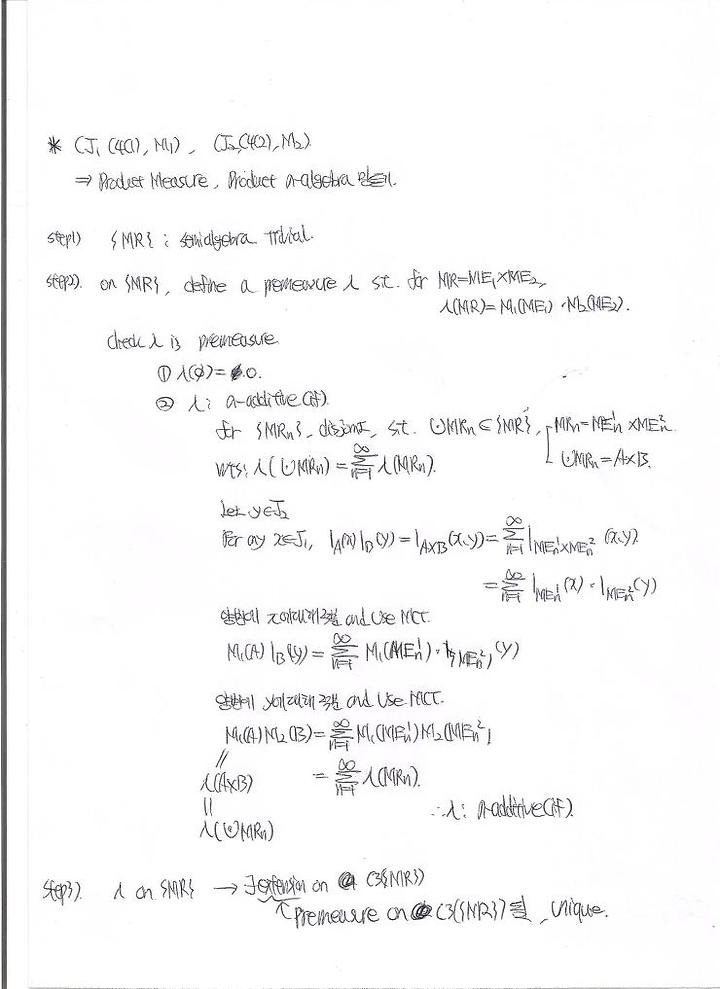 * (J₁, (4C1), M₁), (J₂, (4C2), M₂)
⇒ Product Measure, Product α-algebra 만들기.
step1) {MR} : semialgebra trivial.
step2). on {MR}, define a premeasure λ s.t. for MR=ME₁×ME₂,
λ(MR)=M₁(ME₁)·M₂(ME₂).
check λ is premeasure
① λ(∅)=0.
② λ: α-additive(if)
for {MRn}, disjoint, s.t. ∪MRn ∈ {MR}, MRn=MEn¹×MEn²
∪MRn=A×B.
wts: λ(∪MRn)=∑_{n=1}^{∞} λ(MRn).
Let y∈J₂
For any x∈J₁, 1_A(x)1_B(y)=1_{A×B}(x,y)=∑_{n=1}^{∞} 1_{MEn¹×MEn²}(x,y)
=∑_{n=1}^{∞} 1_{MEn¹}(x)·1_{MEn²}(y)
양변에 x에대해 적분 and Use MCT.
M₁(A)1_B(y)=∑_{n=1}^{∞} M₁(MEn¹)·1_{MEn²}(y)
양변에 y에대해 적분 and Use MCT.
M₁(A)M₂(B)=∑_{n=1}^{∞} M₁(MEn¹)M₂(MEn²)
λ(A×B) =∑_{n=1}^{∞} λ(MRn).
λ(∪MRn) ∴ λ: α-additive(if)
step3). λ on {MR} → ∃ extension on C3({MR})
↑ Premeasure on C3({MR}), unique.